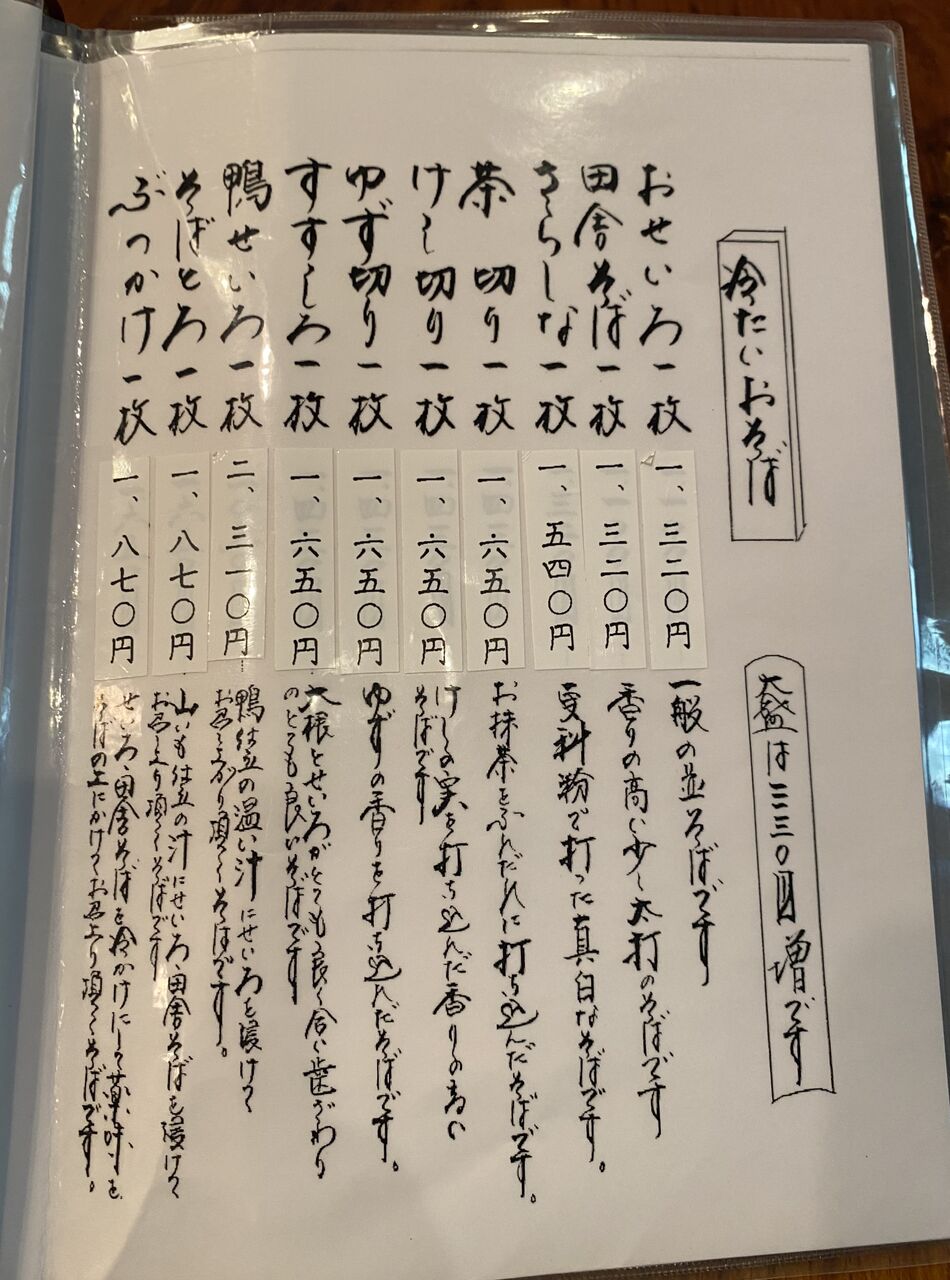 冷たいおそば
大盛は三三〇円増です
おせいろ一枚
一、三二〇円
一般の並そばです
田舎そば一枚
一、三二〇円
香りの高い少し太打のそばです
さらしな一枚
一、五四〇円
更科粉で打った真白なそばです。
茶切り一枚
一、六五〇円
お抹茶をふんだんに打ち込んだそばです。
けし切り一枚
一、六五〇円
けしの実を打ち込んだ香りの高い
そばです
ゆず切り一枚
一、六五〇円
ゆずの香りを打ち込んだそばです。
すずしろ一枚
一、六五〇円
大根とせいろがとても良く合い歯ざわり
のとても良いそばです
鴨せいろ一枚
二、三一〇円
鴨仕立の温い汁にせいろを浸けて
お召し上がり頂くそばです。
そばとろ一枚
一、八七〇円
山いも仕立の汁にせいろ・田舎そばを浸けて
お召し上り頂くそばです
ぶっかけ一枚
一、八七〇円
せいろ・田舎そばを冷かけにして薬味を
そばの上にかけてお召上り頂くそばです。